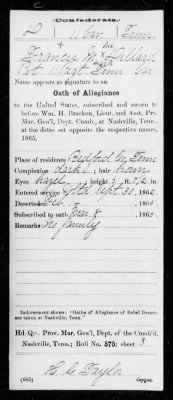 (Confederate.)
D 11 Cav. Tenn
Francis M Dillard
Pvt. 11 Regt. Tenn Cav
Name appears as signature to an
Oath of Allegiance
to the United States, subscribed and sworn to
before Wm. H. Bracken, Lieut. and Asst. Pro.
Mar. Gen'l, Dept. Cumb., at Nashville, Tenn.,
at the dates set opposite the respective names,
1865.
Place of residence Bedford Co Tenn
Complexion dark; hair brown
Eyes hazel; height 5 ft. in.
Entered service Sept 30, 1862
Deserted Feb. , 186
Subscribed to oath Mar 8, 1865
Remarks: No family
Indorsement shows: "Oaths of Allegiance of Rebel Deserters taken at Nashville, Tenn."
Hd. Qrs. Prov. Mar. Gen'l, Dept. of the Cumb'd,
Nashville, Tenn.; Roll No. 575; sheet 3
H. C. Taylor
(665) Copyist.